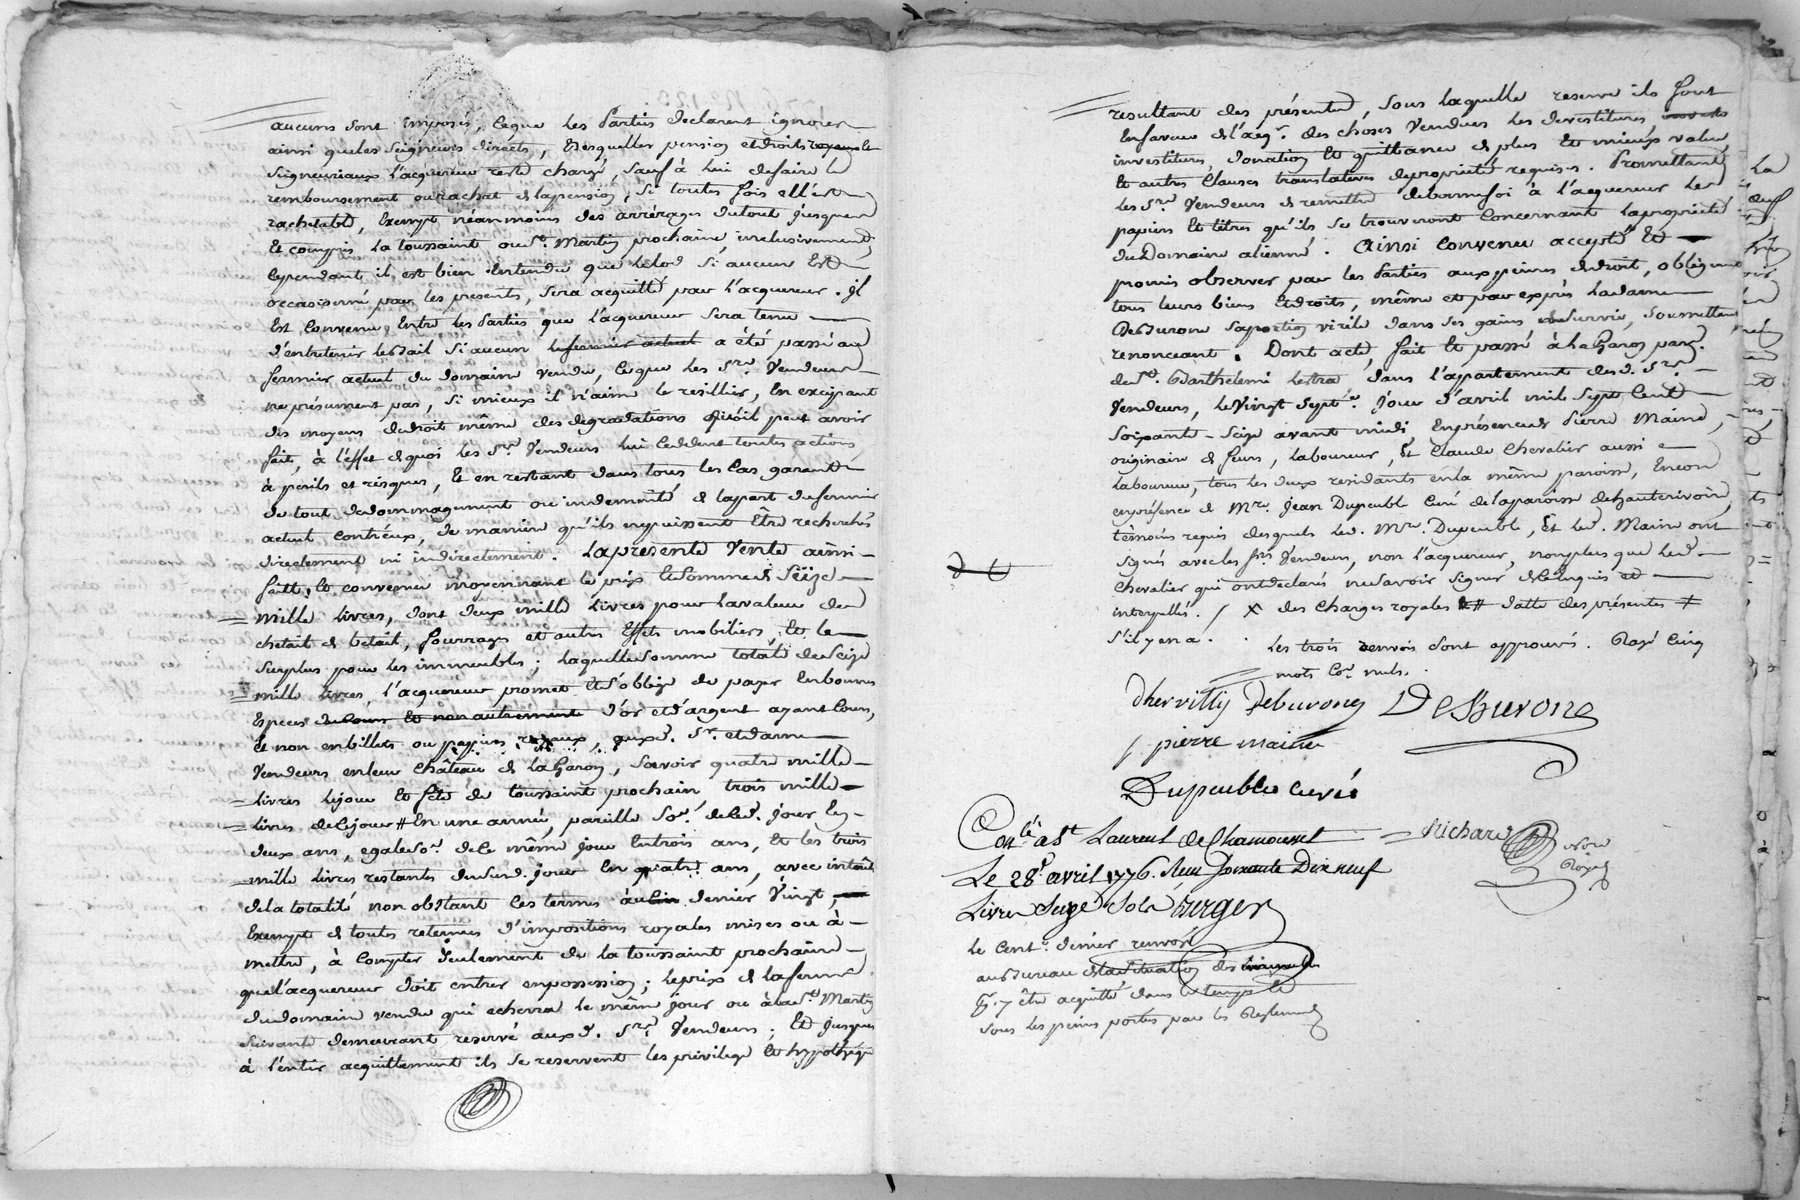 aucuns sont imposés, ceque les parties declarent ignorer
ainsi que les seigneurs directs, desquelles pension et droits royaux et
seigneuriaux l'acquereur reste chargé, sauf à lui defaire le
remboursement ou rachat de la pension, si toutes fois elle est
rachetable, Exempt néanmoins des arrérages du tout jusques
Et compris la toussaint ou St. Martin prochaine inclusivement,
cependant il est bien entendu que le lod si aucun Est
occasionné par les presentes, sera acquitté par l'acquereur. Il
Est convenu Entre les parties que l'acquereur sera tenu
d'entretenir le bail si aucun le fermier actuel a été passé au
fermier actuel du domaine vendu, ceque les Srs. Vendeurs
ne présument pas, si mieux il n'aime le resillier, En excipant
des moyens de droit même des degradations qu'il peut avoir
fait, à l'effet de quoi les Srs. Vendeurs lui cedent toutes actions
à perils et risques, Et en restant dans tous les cas garant
de tout dedommagement ou indemnité de la part du fermier
actuel contr'eux, de maniere qu'ils n'y puissent Être recherchés
directement ni indirectement. La presente Vente ainsi
faitte, Et convenue moyennant le prix Et somme de seize
mille livres, dont deux mille livres pour la valeur du
cheptail de betail, fourrages et autres Effets mobiliers, Et le
surplus pour les immeubles; laquelle somme totale de seize
mille livres, l'acquereur promet Et s'oblige de payer En bonnes
Especes de cours et non autrement d'or et d'argent ayant cours,
Et non en billets ou papiers royaux, auxd. Sr. et dame
Vendeurs en leur château de la Garon, savoir quatre mille
livres le jour Et fête de toussaint prochain trois mille
livres de ce jour # En une année, pareille So.e de led. jour En
deux ans, egale So.e de ce même jour En trois ans, et les trois
mille livres restantes du sud. jour En quatre ans, avec intérêt
de la totalité non obstant ces termes au denier Vingt,
Exempt de toutes retenues d'impositions royales mises ou à
mettre, à compter seulement de la toussaint prochaine
que l'acquereur doit entrer en possession; le prix de la ferme
du domaine vendu qui echerra le même jour ou à la St. Martin
suivante demeurant reservé auxd. Srs. Vendeurs; Et jusques
à l'entier acquittement ils se reservent les privilege Et hypothéque
resultant des présentes, sous laquelle reserve ils font
En faveur de l'acq.r des choses Vendues les devestitures
investitures, donation Et quittance de plus Et mieux value
Et autres clauses translatives de proprieté requises. Promettant
les Srs. Vendeurs de remettre de bonne foi à l'acquereur les
papiers Et titres qu'ils se trouveront concernant la proprieté
du domaine aliené. Ainsi convenu accepté Et
promis observer par les parties aux peines de droit, obligeant
tous leurs biens Et droits, même et par exprès la dame
DeBurone sa portion virile dans ses gains de survie, soumettant
renonceant. Dont acte, fait Et passé à la Garon par.
de St. Barthelemi Lestra dans l'appartement desd. Srs.
Vendeurs, le vingt septe. jour d'avril mil sept cent
soixante-seize avant midi, En présence de Pierre Maine,
originaire de feurs, laboureur, Et Claude Chevalier aussi
laboureur, tous les deux residants en la même paroisse, Encor
en présence de Mre. Jean Dupeuble Curé de la paroisse de hauterivoire,
témoins requis desquels led. Mre. Dupeuble, Et led. Maine ont
signés avec les Srs. Vendeurs, non l'acquereur, non plus que led.
Chevalier qui ont declarés ne savoir signer de ce enquis et
interpellés. / X des charges royales ## datte des présentes #
s'il y en a. Les trois renvois sont approuvés. Rayé cinq
mots co.e nuls.
dhervilly Deburone DeBurone
pierre maine
Dupeuble curé
Con.lé a St Laurent de Chamousset Richard
Le 28e avril 1776. Reçu soixante Dix neuf
Livres Seize Sols Burger
Notre
Royal
le cent.e denier renvoié
au bureau de la situation des
p.r y être acquitté dans le temps Et
sous les peines portées par les Reglements